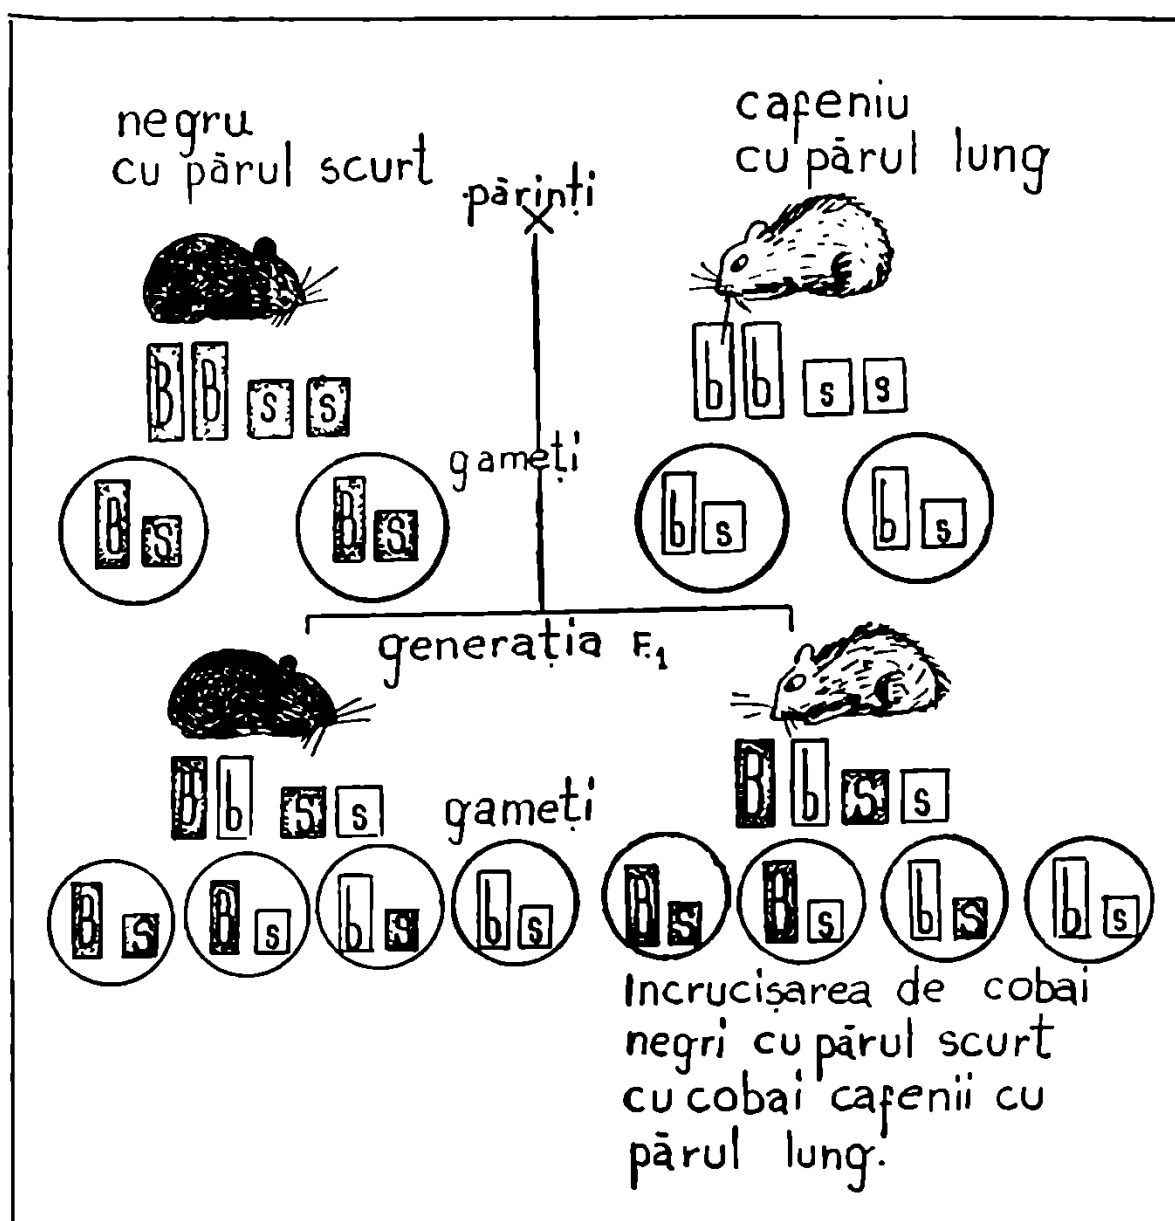 negru
cu părul scurt
părinți
cafeniu
cu părul lung
B B s s
b b s s
gameți
B s B s
b s b s
generația F.1
B b s s
B b s s
gameți
B s B s b s b s
B s B s b s b s
Incrucișarea de cobai
negri cu părul scurt
cu cobai cafenii cu
părul lung.